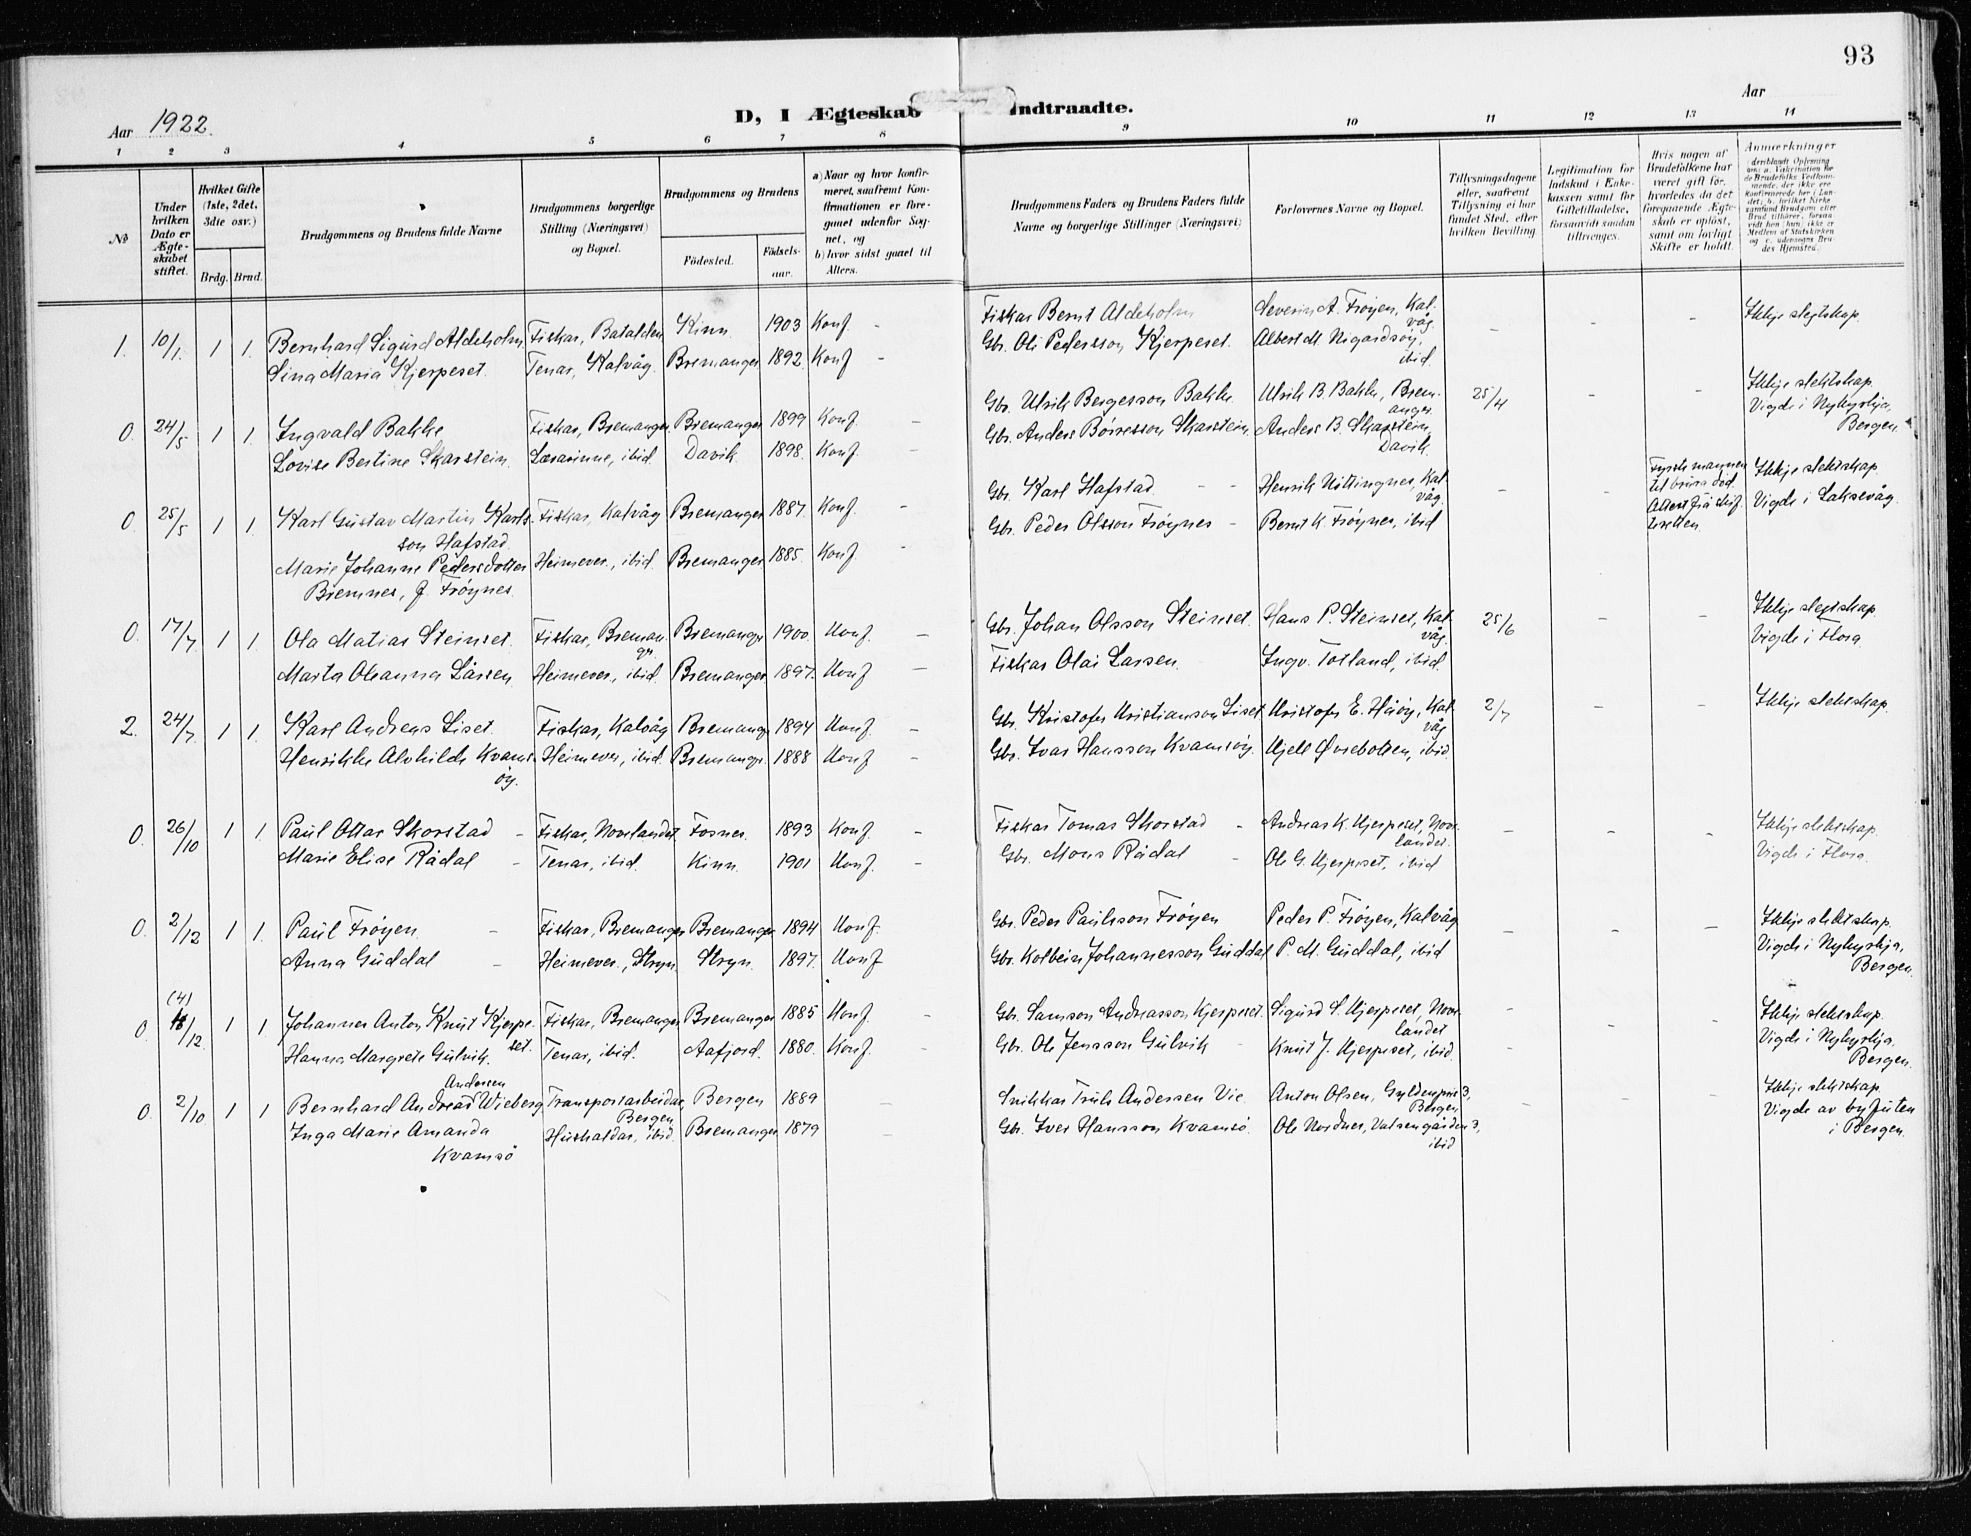 93
Aar 1922.
D, I Ægteskab Indtraadte.
Aar
1 2 3 4 5 6 7 8 9 10 11 12 13 14
No
Under hvilken Dato er Ægteskabet stiftet.
Hvilket Gifte (1ste, 2det, 3die osv.)
Brdg. Brud.
Brudgommens og Brudens fulde Navne
Brudgommens borgerlige Stilling (Næringsvei) og Bopæl.
Brudgommens og Brudens
Fødested.
Fødselsaar.
a) Naar og hvor konfirmeret, saafremt Konfirmationen er foregaaet udenfor Sognet, og
b) hvor sidst gaaet til Alters.
Brudgommens Faders og Brudens Faders fulde Navne og borgerlige Stillinger (Næringsvei)
Forlovernes Navne og Bopæl.
Tillysningsdagene eller, saafremt Tillysning ei har fundet Sted, efter hvilken Bevilling.
Legitimation for Indskud i Enkekassen samt for Giftetilladelse, forsaavidt saadan tiltrænges.
Hvis nogen af Brudefolkene har været gift før, hvorledes da det foregaaende Ægteskab er opløst, samt om lovligt Skifte er holdt.
Anmærkninger
1. 10/1. 1 1. Bernhard Sigurd Aldeholm Fiskar, Batalden Kinn 1903 Konf - Fiskar Bernt Aldeholm Severin A. Frøyen, Kalvåg. - - - Ikkje slegtskap.
Lina Maria Kjerpeset. Tenar, Kalvåg. Bremanger 1892. Konf Gbr. Oli Pedersson Kjerpeset. Albert M. Nigardsøy, ibid.
0. 24/5 1 1. Ingvald Bakke Fiskar, Bremanger, Bremanger 1899 Konf. - Gbr. Ulrik Bergesson Bakke. Ulrik B. Bakke, Bremanger 25/4 - - Ikkje slektskap. Vigde i Nykyrkja, Bergen.
Lovise Bertine Skarstein. Lærarinne, ibid. Davik. 1898. Konf. - Gbr. Anders Børresson Skarstein. Anders B. Skarstein, Davik.
0. 25/5 1 1. Karl Gustav Martin Karlsson Hafstad. Fiskar, Kalvåg Bremanger 1887. Konf. - Gbr. Karl Hafstad - - Henrik Nøttingnes, Kalvåg. - - Fyrste mannen til brura død. Attest frå skifteretten. Ikkje slektskap. Vigde i Laksevåg.
Marie Johanne Pedersdotter Bremnes, f. Frøynes. Heimever., ibid. Bremanger 1885. Konf. - Gbr. Peder Olsson Frøynes - Bernt K. Frøynes, ibid
0. 17/7. 1 1. Ola Matias Steinset. Fiskar, Bremangr. Bremangr 1900. Konf. - Gbr. Johan Olsson Steinset. Hans P. Steinset, Kalvåg. 25/6 - - Ikkje slegtskap. Vigde i Flora
Marta Oleanna Larsen. Heimever., ibid. Bremanger 1897. Konf - Fiskar Olai Larsen. Ingv. Totland, ibid.
2. 24/7. 1 1. Karl Andreas Liset. Fiskar, Kalvåg Bremangr 1894 Konf. - Gbr. Kristofer Kristianson Liset Kristofer E. Håøy, Kalvåg 2/7 - - Ikkje slektskap.
Henrikke Alvhilde Kvamsøy. Heimever, ibid. Bremangr. 1888 Konf - Gbr. Ivar Hansson Kvamsøy. Kjell Øvrebotten, ibid
0. 26/10 1 1. Paul Ottar Skorstad - Fiskar, Novelandet. Fosnes. 1893 Konf. - Fiskar Tomas Skorstad - Andreas K. Kjerpeset, Novelandet. - - - Ikkje slektskap. Vigde i Flora.
Marie Elise Rådal - Tenar, ibid. Kinn. 1901 Konf. - Gbr. Mons Rådal - Ole G. Kjerpeset, ibid
0. 2/12 1 1. Paul Frøyen. - Fiskar, Bremanger Bremanger 1894 Konf. Gbr. Peder Paulsson Frøyen Peder P. Frøyen, Kalvåg - - - Ikkje slektskap. Vigde i Nykyrkja, Bergen.
Anna Guddal - Heimever., Stryn. Stryn. 1897. Konf Gbr. Kolbein Johannesson Guddal P. M. Guddal, ibid
0. (4) /12. 1 1 Johannes Anton Knut Kjerpeset. Fiskar, Bremanger Bremanger 1885 Konf. Gbr. Samson Andreasson Kjerpeset. Sigurd S. Kjerpeset, Novelandet - - - Ikkje slektskap. Vigde i Nykyrkja. Bergen.
Hanna Margrete Gulvik. Tenar, ibid. Aafjord. 1880. Konf. - Gbr. Ole Jensson Gulvik - Knut J. Kjerpeset, ibid. -
0. 2/10 1 1 Bernhard Andreas Andersen Wieberg Transportarbeidar, Bergen Bergen 1889 - Snikkar Truls Andersen Vie. Anton Olsen, Gyldenpris 3, Bergen - - - Ikkje slektskap. Vigde av byfuten i Bergen.
Inga Marie Amanda Kvamsö Hushaldar, ibid. Bremanger 1879 - Gbr. Iver Hansson Kvamsö. Ole Nordnes, ibid